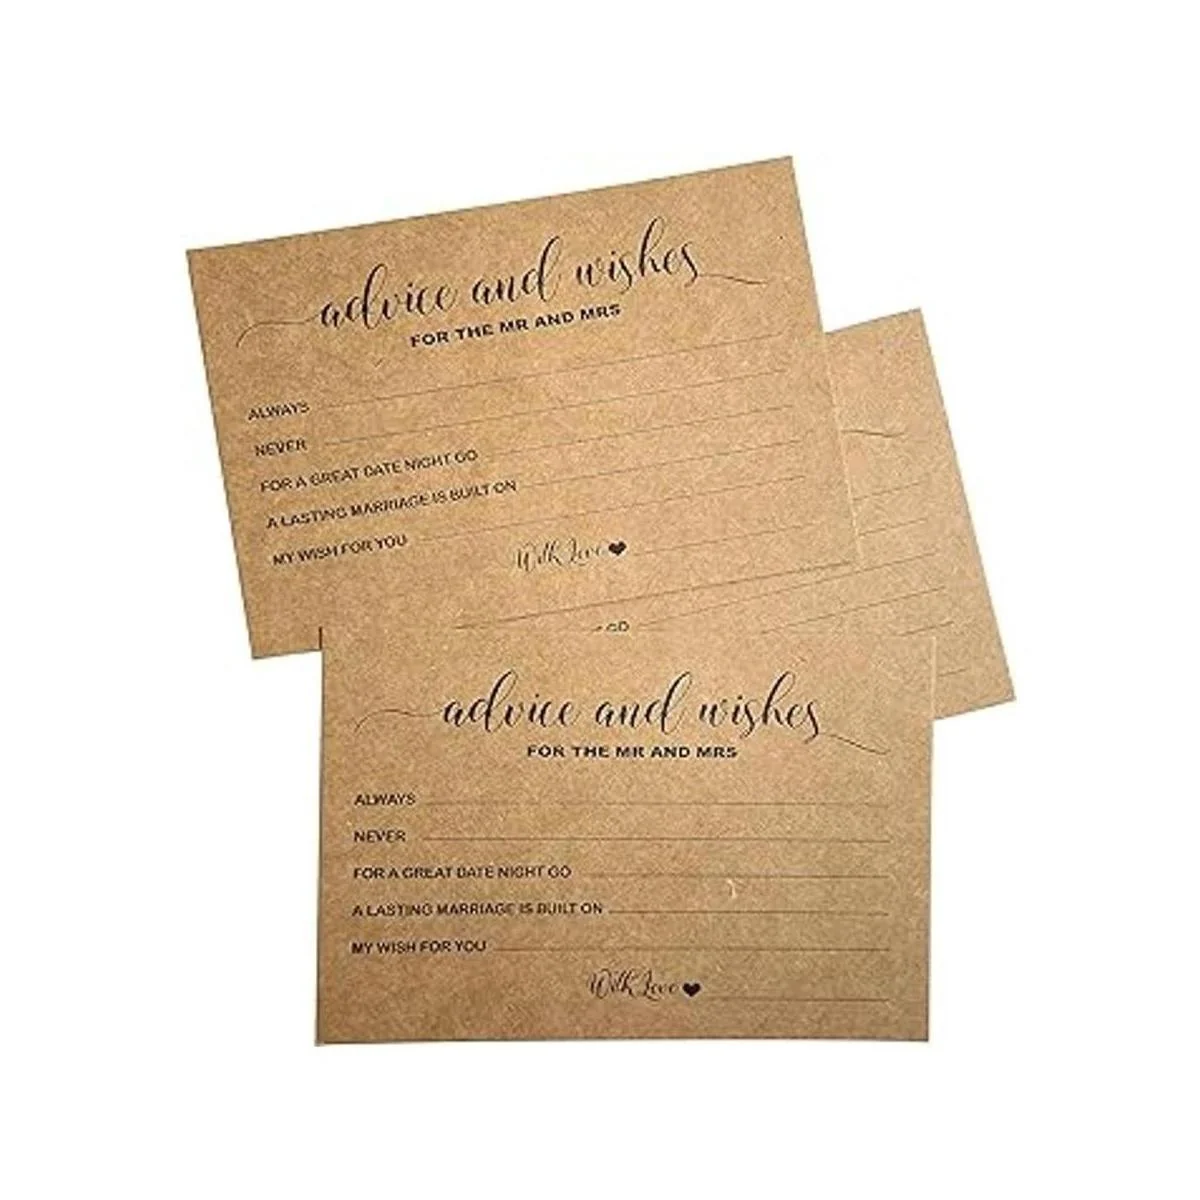 advice and wishes
FOR THE MR AND MRS
ALWAYS
NEVER
FOR A GREAT DATE NIGHT GO
A LASTING MARRIAGE IS BUILT ON
MY WISH FOR YOU
With Love
GO
advice and wishes
FOR THE MR AND MRS
ALWAYS
NEVER
FOR A GREAT DATE NIGHT GO
A LASTING MARRIAGE IS BUILT ON
MY WISH FOR YOU
With Love